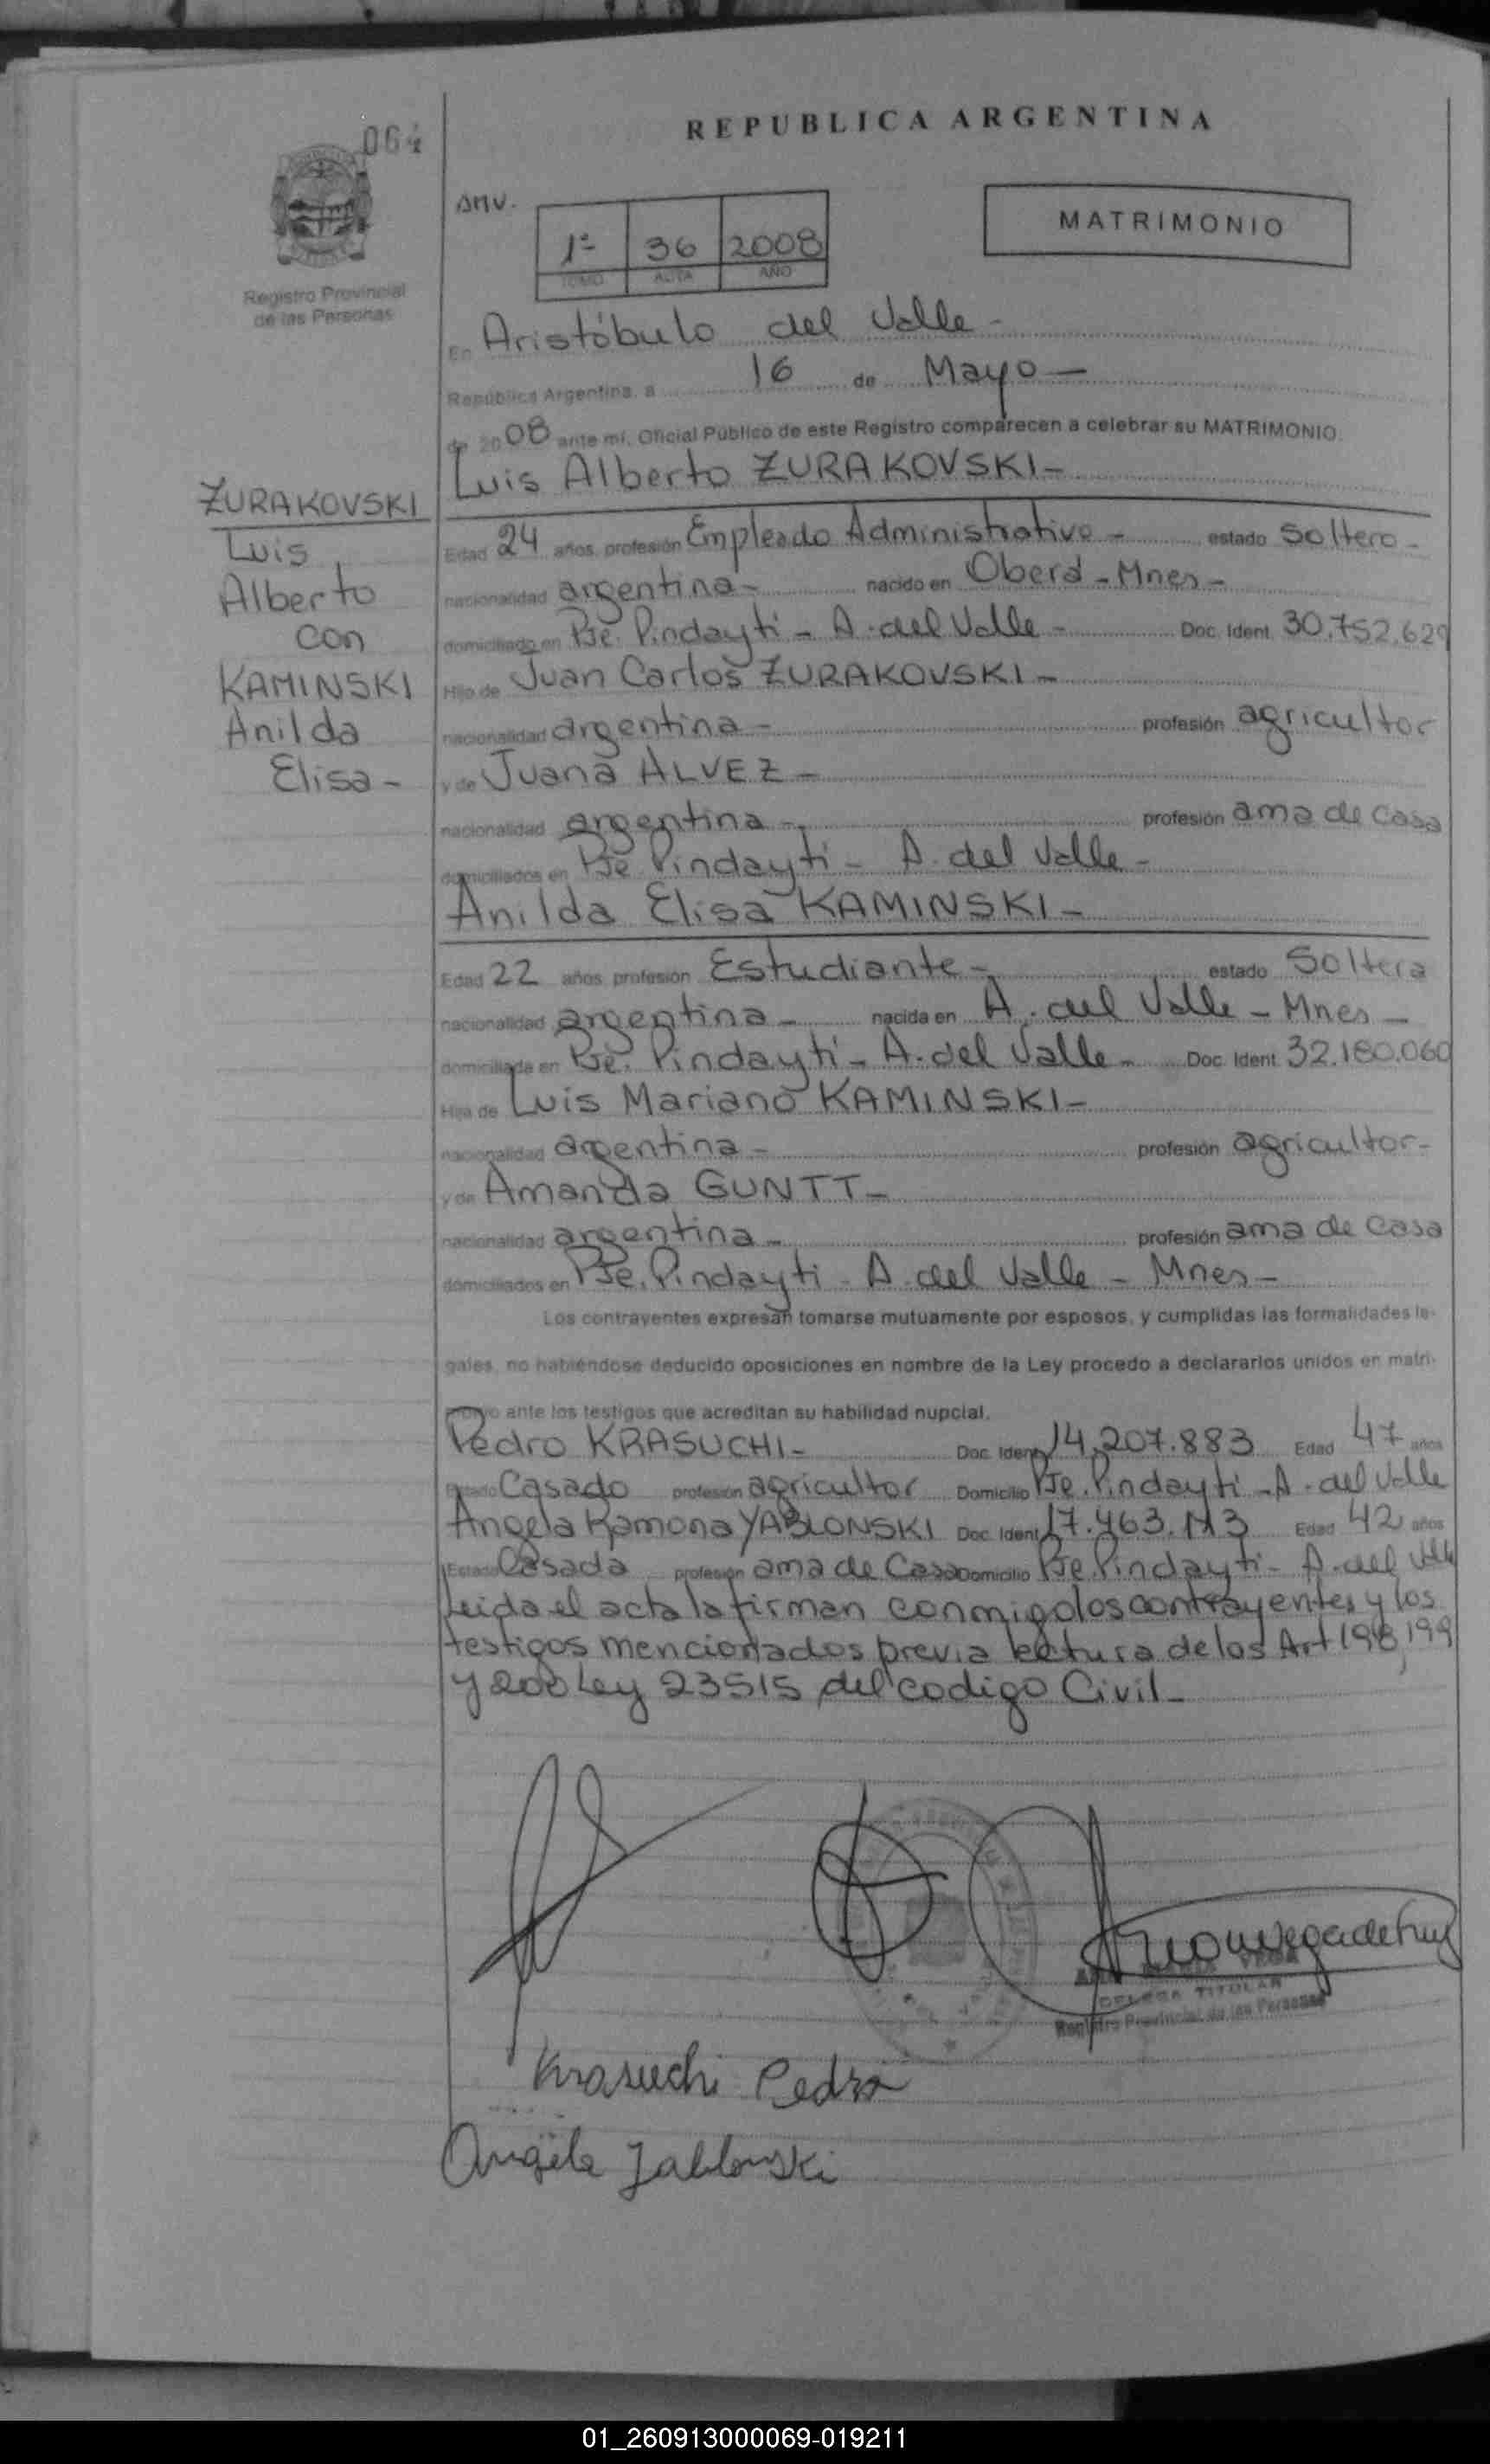 064
REPUBLICA ARGENTINA
AMV.
1º 36 2008
TOMO ACTA AÑO
MATRIMONIO
Registro Provincial
de las Personas
En Aristóbulo del Valle -
República Argentina, a 16 de Mayo -
de 2008 ante mí, Oficial Público de este Registro comparecen a celebrar su MATRIMONIO.
Luis Alberto ZURAKOVSKI -
ZURAKOVSKI
Luis
Alberto
con
KAMINSKI
Anilda
Elisa -
Edad 24 años, profesión Empleado Administrativo - estado Soltero -
nacionalidad argentina - nacido en Oberá - Mnes -
domiciliado en Pje. Pindaytí - A. del Valle - Doc. Ident. 30.752.629
Hijo de Juan Carlos ZURAKOVSKI -
nacionalidad argentina - profesión agricultor
y de Juana ALVEZ -
nacionalidad argentina - profesión ama de casa
domiciliados en Pje Pindaytí - A. del Valle -
Anilda Elisa KAMINSKI -
Edad 22 años, profesión Estudiante - estado Soltera
nacionalidad argentina - nacida en A. del Valle - Mnes -
domiciliada en Pje. Pindaytí - A. del Valle - Doc. Ident. 32.180.060
Hija de Luis Mariano KAMINSKI -
nacionalidad argentina - profesión agricultor -
y de Amanda GUNTT -
nacionalidad argentina - profesión ama de casa
domiciliados en Pje. Pindayti - A. del Valle - Mnes -
Los contrayentes expresan tomarse mutuamente por esposos, y cumplidas las formalidades le-
gales, no habiéndose deducido oposiciones en nombre de la Ley procedo a declararlos unidos en matri-
monio ante los testigos que acreditan su habilidad nupcial.
Pedro KRASUCHI - Doc. Ident. 14.207.883 Edad 47 años
Estado Casado profesión agricultor Domicilio Pje. Pindaytí - A. del Valle
Angela Ramona YABLONSKI Doc. Ident. 17.463.113 Edad 42 años
Estado Casada profesión ama de Casa Domicilio Pje. Pindaytí - A. del Valle
Leida el acta la firman conmigo los contrayentes y los
testigos mencionados previa lectura de los Art 198, 199
y 200 Ley 23515 del codigo Civil -
VEGA
DELEGA TITULAR
Registro Provincial de las Personas
Krasuchi Pedro
Angela Jablonski
01_260913000069-019211